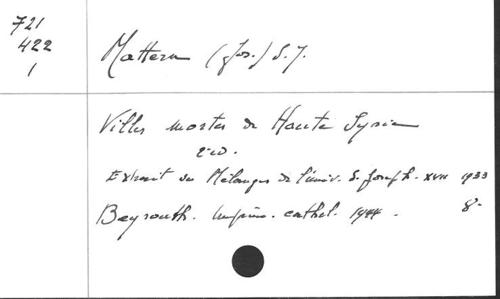 721
422
1
Mattern (Jos.) S.J.
Villes mortes de Haute Syrie
2 éd.
Extrait des Mélanges de l'Univ. S. Joseph. XVII 1933
Beyrouth. Imprim. cathol. 1944. 8°